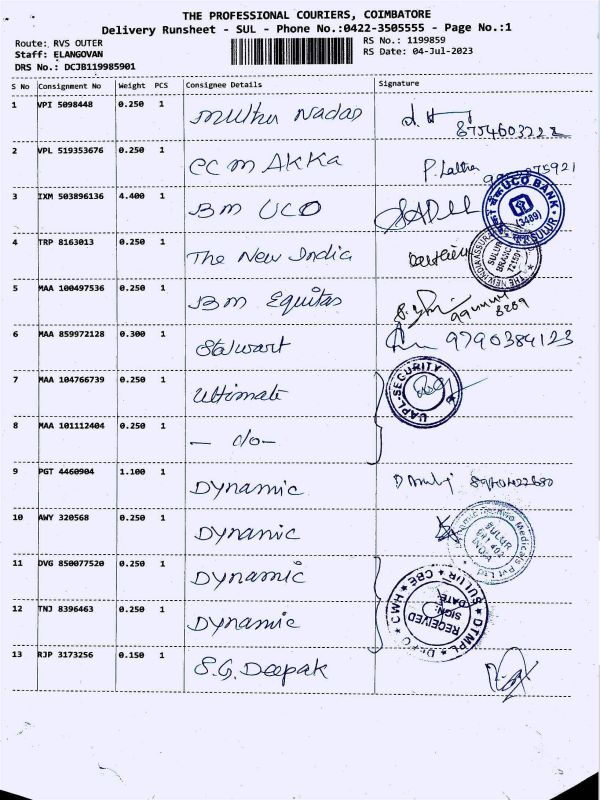 THE PROFESSIONAL COURIERS, COIMBATORE
Delivery Runsheet - SUL - Phone No.:0422-3505555 - Page No.:1
Route: RVS OUTER
RS No.: 1199859
Staff: ELANGOVAN
RS Date: 04-Jul-2023
DRS No.: DCJB119985901
S No Consignment No Weight PCS Consignee Details Signature
1 VPI 5098448 0.250 1 Muthu Nadas
2 VPL 519353676 0.250 1 CC M AKKA P. Latha
3 IXM 503896136 4.400 1 BM UCO
UCO BANK (3489) SULUR
4 TRP 8163013 0.250 1 The New India
5 MAA 100497536 0.250 1 BM Equitas
6 MAA 859972128 0.300 1 Stalwart 9790384123
7 MAA 104766739 0.250 1 Ultimate
UAPL-SECURITY
8 MAA 101112404 0.250 1 — do —
9 PGT 4460904 1.100 1 Dynamic
10 AWY 320568 0.250 1 Dynamic
SULUR
INDIA
11 DVG 850077520 0.250 1 Dynamic
12 TNJ 8396463 0.250 1 Dynamic
RECEIVED
SIGN:
DATE:
DTMPL CWH CBE SULUR
13 RJP 3173256 0.150 1 S.G. Deepak